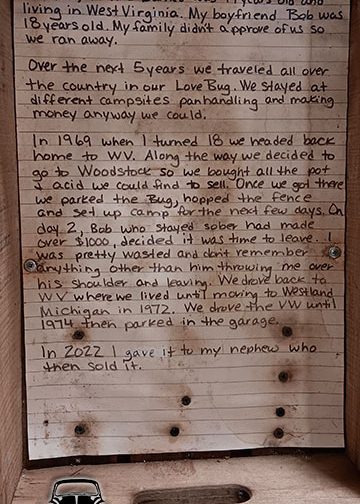 living in West Virginia. My boyfriend Bob was
18 years old. My family didn't approve of us so
we ran away.
Over the next 5 years we traveled all over
the country in our Love Bug. We stayed at
different campsites panhandling and making
money anyway we could.
In 1969 when I turned 18 we headed back
home to WV. Along the way we decided to
go to Woodstock so we bought all the pot
& acid we could find to sell. Once we got there
we parked the Bug, hopped the fence
and set up camp for the next few days. On
day 2, Bob who stayed sober had made
over $1000, decided it was time to leave. I
was pretty wasted and don't remember
anything other than him throwing me over
his shoulder and leaving. We drove back to
WV where we lived until moving to Westland
Michigan in 1972. We drove the VW until
1974 then parked in the garage.
In 2022 I gave it to my nephew who
then sold it.